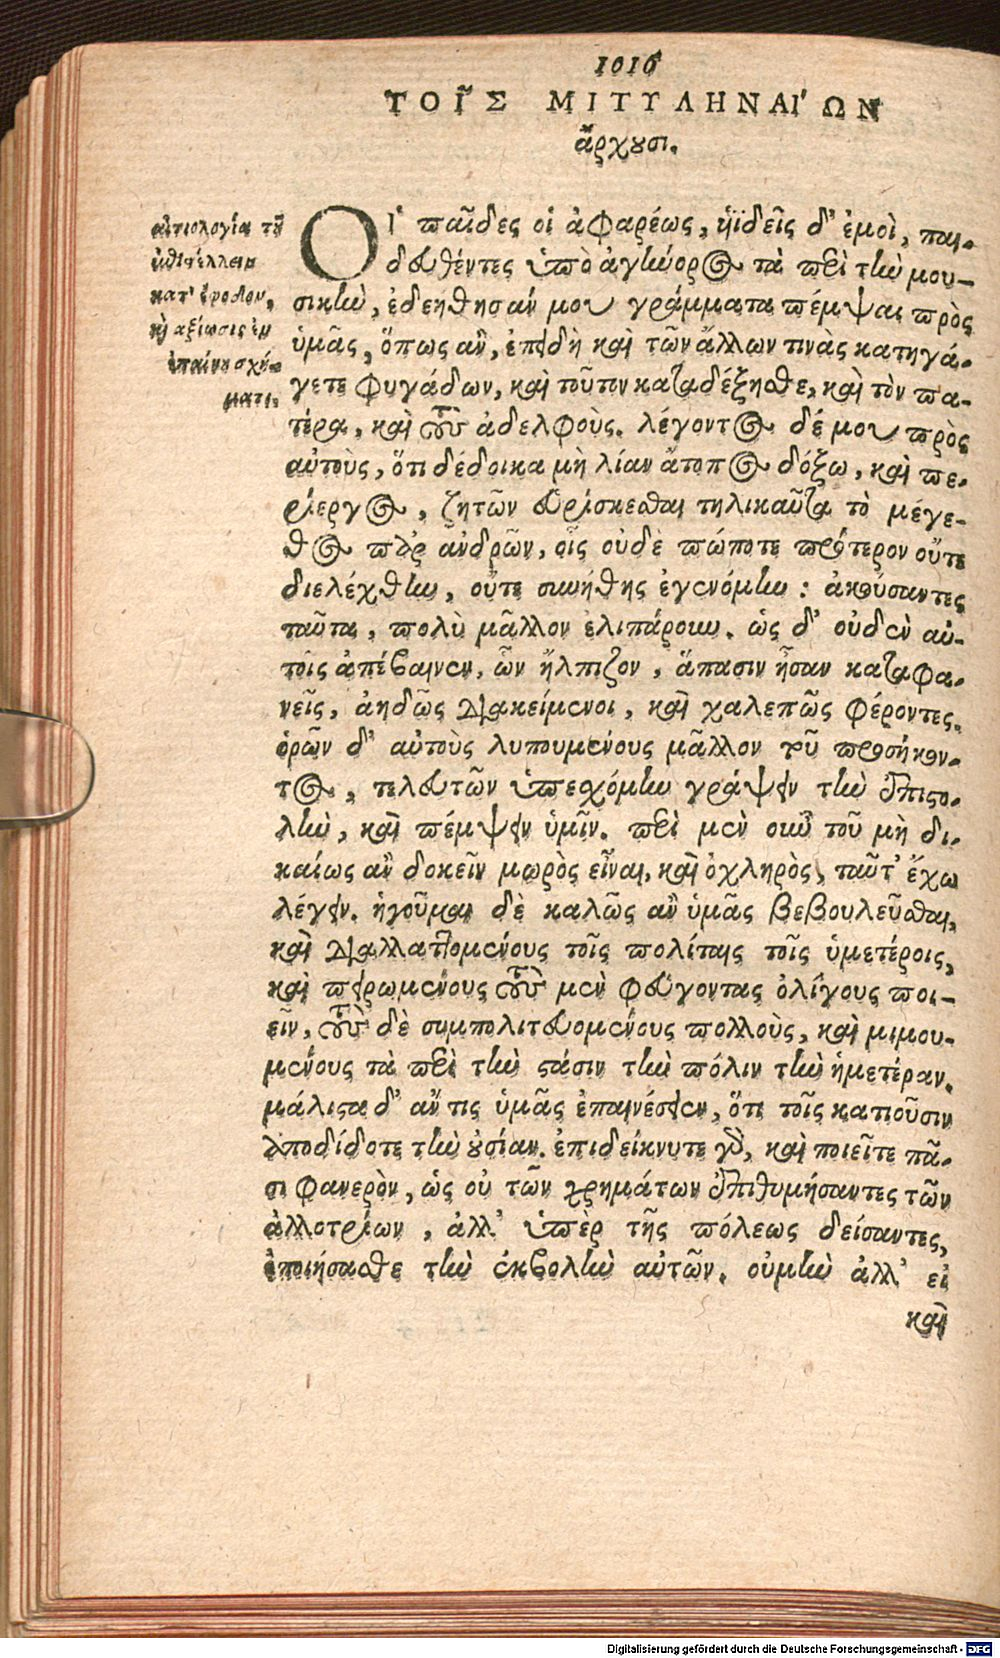 1016
ΤΟΙ͂Σ ΜΙΤΥΛΗΝΑΊΩΝ
ἄρχουσι.
αἰτιολογία τοῦ
ἐπιστέλλειν
κατ' ἔφοδον,
καὶ ἀξίωσις ἐν
ἐπαίνου σχή-
ματι.
ΟἹ παῖδες οἱ ἀφαρέως, ὑϊδεῖς δ' ἐμοὶ, παι-
δευθέντες ὑπὸ ἀγήνορος τὰ περὶ τὴν μου-
σικὴν, ἐδεηθησάν μου γράμματα πέμψαι πρὸς
ὑμᾶς, ὅπως ἂν, ἐπειδὴ καὶ τῶν ἄλλων τινὰς κατηγά-
γετε φυγάδων, καὶ τοῦτον καταδέξησθε, καὶ τὸν πα-
τέρα, καὶ τοὺς ἀδελφούς. λέγοντος δέ μου πρὸς
αὐτοὺς, ὅτι δέδοικα μὴ λίαν ἄτοπος δόξω, καὶ πε-
ρίεργος, ζητῶν εὑρίσκεσθαι τηλικαῦτα τὸ μέγε-
θος παρ' ἀνδρῶν, οἷς οὐδὲ πώποτε πρότερον οὔτε
διελέχθην, οὔτε συνήθης ἐγενόμην: ἀκούσαντες
ταῦτα, πολὺ μᾶλλον ἐλιπάρουν. ὡς δ' οὐδὲν αὐ-
τοῖς ἀπέβαινεν, ὧν ἤλπιζον, ἅπασιν ἦσαν καταφα-
νεῖς, ἀηδῶς διακείμενοι, καὶ χαλεπῶς φέροντες.
ὁρῶν δ' αὐτοὺς λυπουμένους μᾶλλον τοῦ προσήκον-
τος, τελευτῶν ὑπεσχόμην γράψειν τὴν ἐπιστο-
λὴν, καὶ πέμψειν ὑμῖν. περὶ μὲν οὖν τοῦ μὴ δι-
καίως ἂν δοκεῖν μωρὸς εἶναι, καὶ ὀχληρὸς, ταῦτ' ἔχω
λέγειν. ἡγοῦμαι δὲ καλῶς ἂν ὑμᾶς βεβουλεῦσθαι,
καὶ διαλλαττομένους τοῖς πολίταις τοῖς ὑμετέροις,
καὶ πειρωμένους τοὺς μὲν φεύγοντας ὀλίγους ποι-
εῖν, τοὺς δὲ συμπολιτευομένους πολλοὺς, καὶ μιμου-
μένους τὰ περὶ τὴν στάσιν τὴν πόλιν τὴν ἡμετέραν.
μάλιστα δ' ἄν τις ὑμᾶς ἐπαινέσειεν, ὅτι τοῖς κατιοῦσιν
ἀποδίδοτε τὴν οὐσίαν. ἐπιδείκνυτε γὰρ, καὶ ποιεῖτε πᾶ-
σι φανερὸν, ὡς οὐ τῶν χρημάτων ἐπιθυμήσαντες τῶν
ἀλλοτρίων, ἀλλ' ὑπὲρ τῆς πόλεως δείσαντες,
ἐποιήσασθε τὴν ἐκβολὴν αὐτῶν. οὐμὴν ἀλλ' εἰ
καὶ
Digitalisierung gefördert durch die Deutsche Forschungsgemeinschaft - DFG